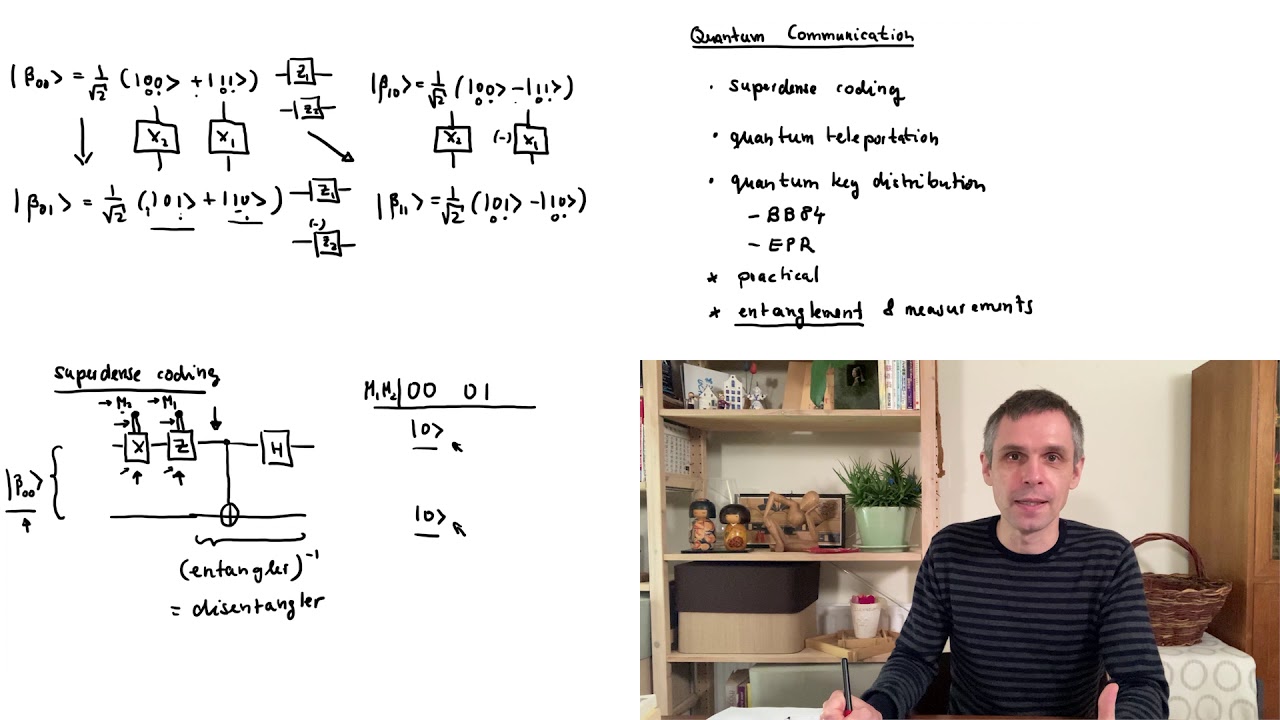 |β₀₀> = 1/√2 (|00> + |11>) Z₁
Z₂
X₂ X₁
|β₀₁> = 1/√2 (|01> + |10>) Z₁
(-)
Z₂
|β₁₀> = 1/√2 (|00> - |11>)
X₂ (-) X₁
|β₁₁> = 1/√2 (|01> - |10>)
Quantum Communication
· superdense coding
· quantum teleportation
· quantum key distribution
- BB84
- EPR
* practical
* entanglement & measurements
superdense coding
→ M₂ → M₁
X Z H
|β₀₀>
(entangler)⁻¹
= disentangler
M₁M₂ | 00 01
|0>
|0>